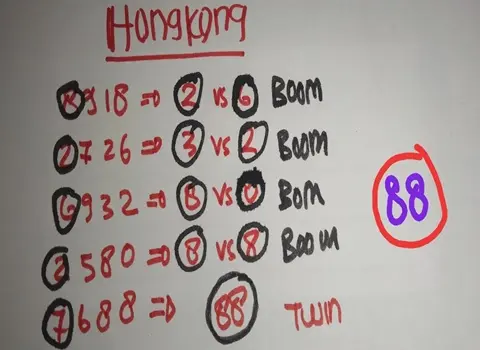 Hongkong
8918 => 2 vs 6 BOOM
2726 => 3 vs 2 BOOM
6932 => 8 vs 0 BOM
2580 => 8 vs 8 BOOM
7688 => 88 TWIN
88